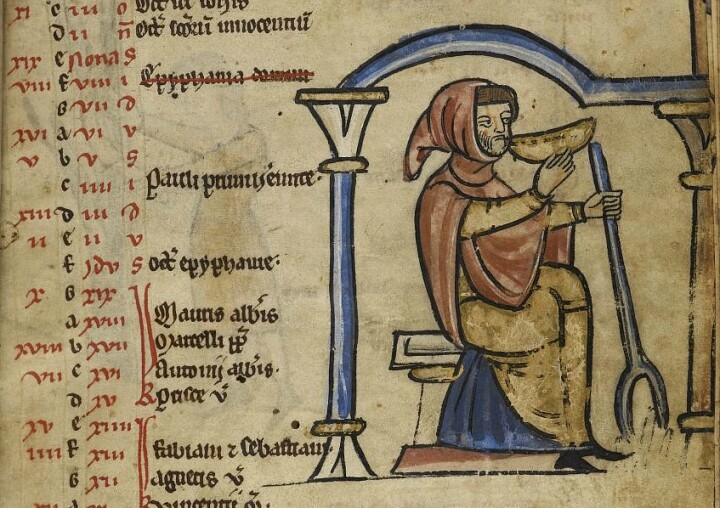 xi c iii o Oct
d ii n Oct scorū innocentiū
xix e Nonas
viii f viii i Epyphania domini
g vii d
xvi a vi v
v b v s
c iiii i Pauli primi
xiii d iii d
ii e ii v
f Idus s oct epyphanie.
x g xix
a xviii Mauris abbis
xviii b xvii Marcelli pp
vii c xvi Antonii abbis.
d xv Prisce v
xv e xiiii
iiii f xiii Fabiani ⁊ sebastiani
g xii Agnetis v
a Vincentii m